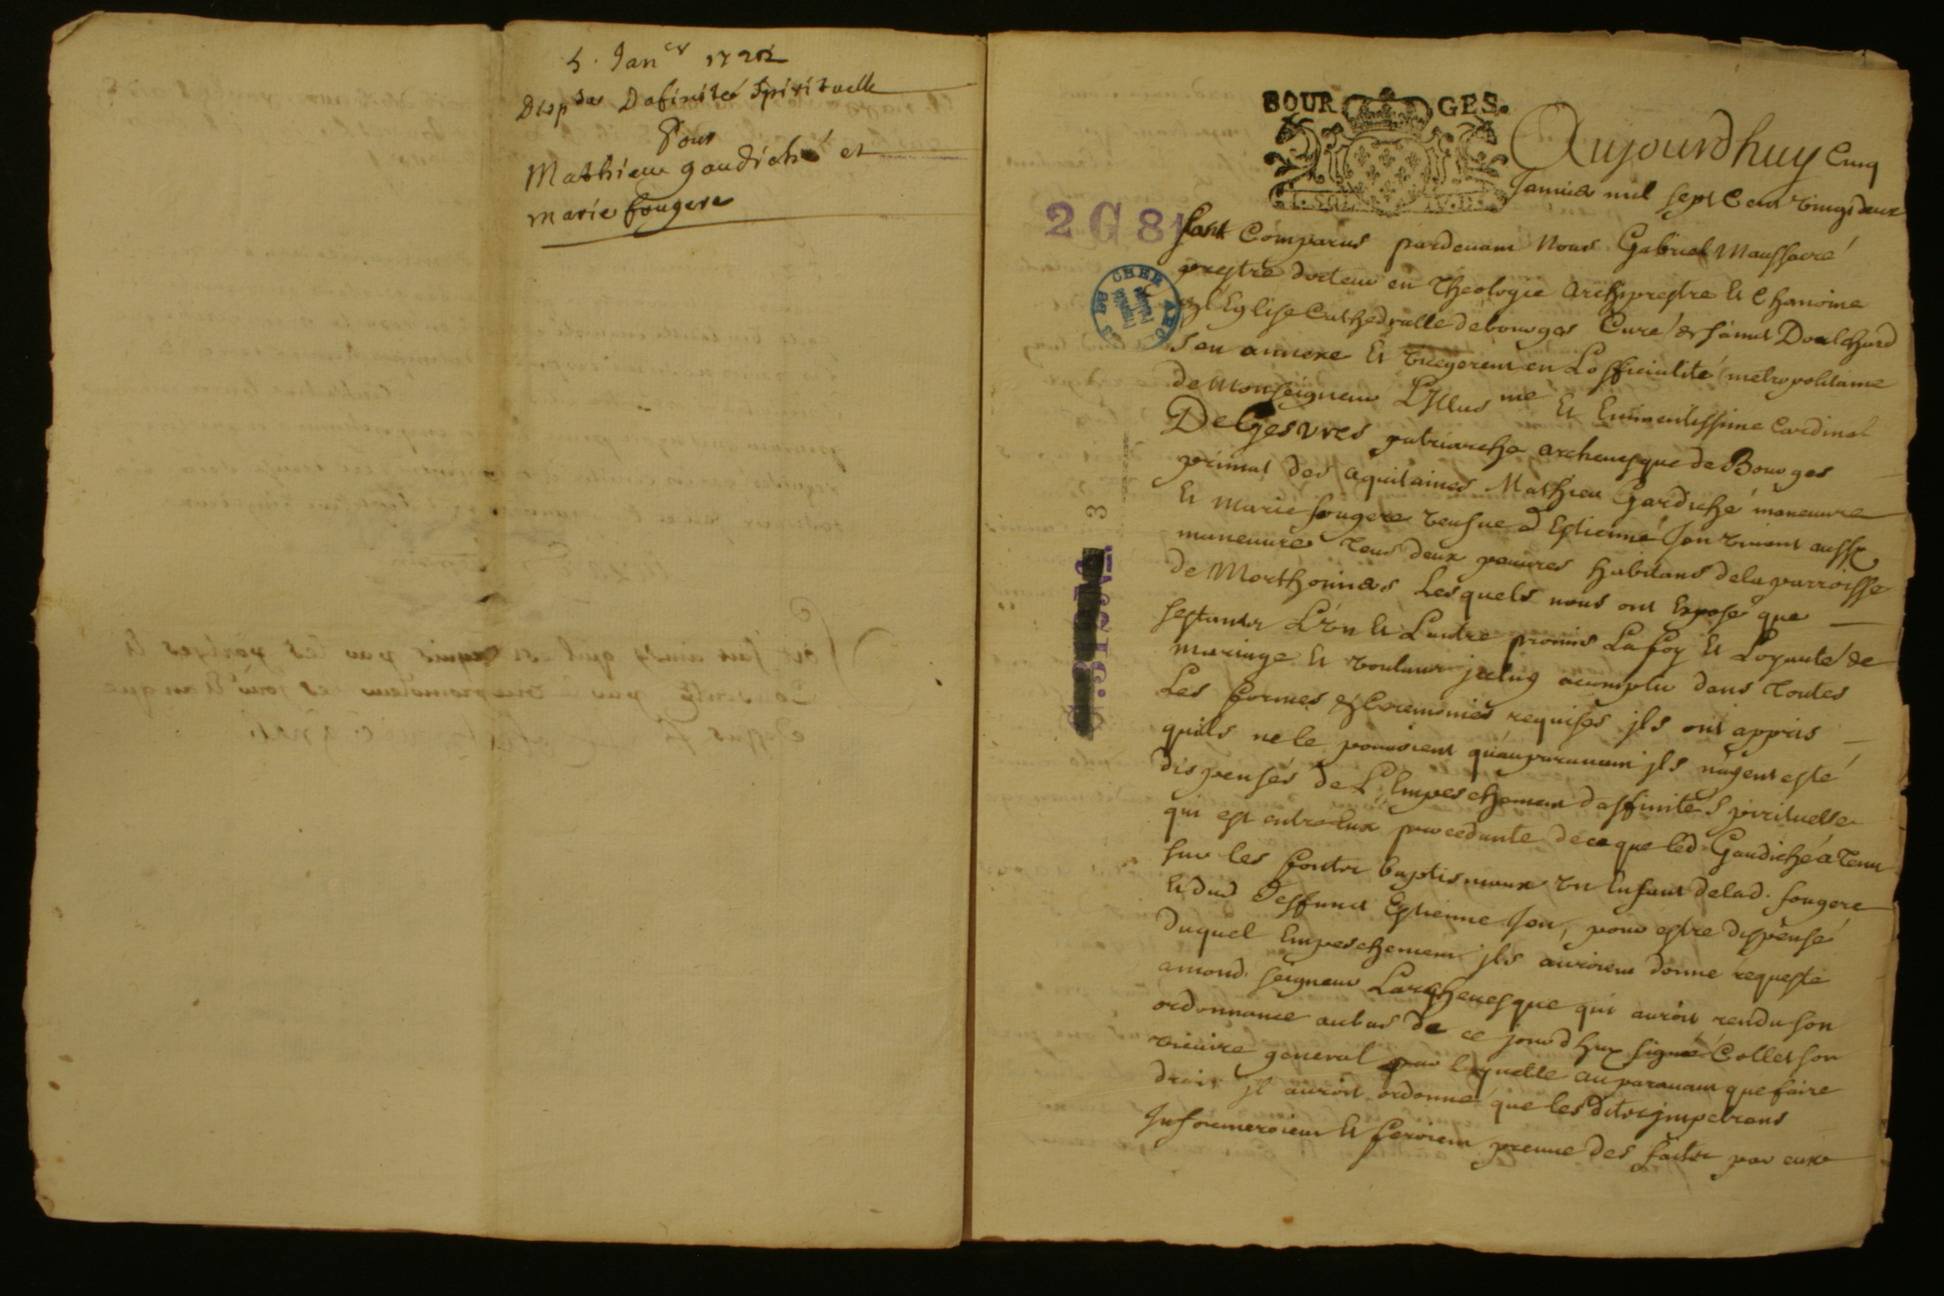 5. Janer 1722
Dispse Dafinité Spirituelle
Pour
Mathieu gaudiché et
marie fougere
BOUR GES.
Aujourdhuy Cinq
Janvier mil sept Cent vingt deux
2 G 81
Sont Comparus pardevant Nous Gabriel Maussavré
prestre docteur en Theologie Archiprestre et Chanoine
de L'Eglise Cathedralle de bourges Curé de saint Doulchard
son annexe Et vicegerent en Lofficialité metropolitaine
de Monseigneur L'Illusme Et Eminentissime Cardinal
De Gesvres patriarche archevesque de Bourges
primat des aquitaines Mathieu Gardiché maneuvre
Et Marie fougere veufve d'Estienne Jon vivant aussy
maneuvre tous deux pauvres habitans de la parroisse
de Morthomiers Lesquels nous ont Exposé que
sestants L'un Et Lautre promis La foy Et Loyauté de
mariage Et voulant jceluy acomplir dans toutes
Les formes et Ceremonies requises jls ont appris
quils ne le pouvoient quauparavant jls nayent esté
dispensés de L'Empeschement daffinité Spirituelle
qui est entre Eux procedante de ce que led. Gaudiché a tenu
sur les fonts baptismaux un Enfant de lad. fougere
Et dud deffunct Estienne Jon, pour estre dispensé
duquel Empeschement jls auroient donné requeste
a mond. seigneur Larchevesque qui auroit rendu son
ordonnance au bas de ce jourdhuy signé Collet son
vicaire general par laquelle auparavant que faire
droit jl auroit ordonné que lesdits jmpetrans
Informeroient Et feroient preuve des faits par eux
3